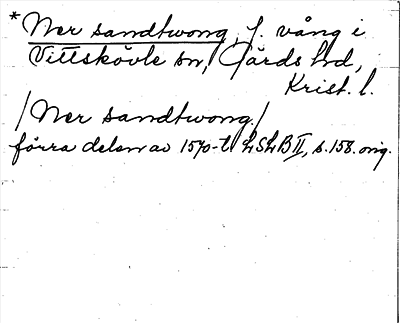 * Ner sandtwong, f. vång i
Vittskövle sn, Gärds hd,
Krist. l.
/Ner sandtwong/
förra delen av 1570-t. LSLB II, s. 158. orig.